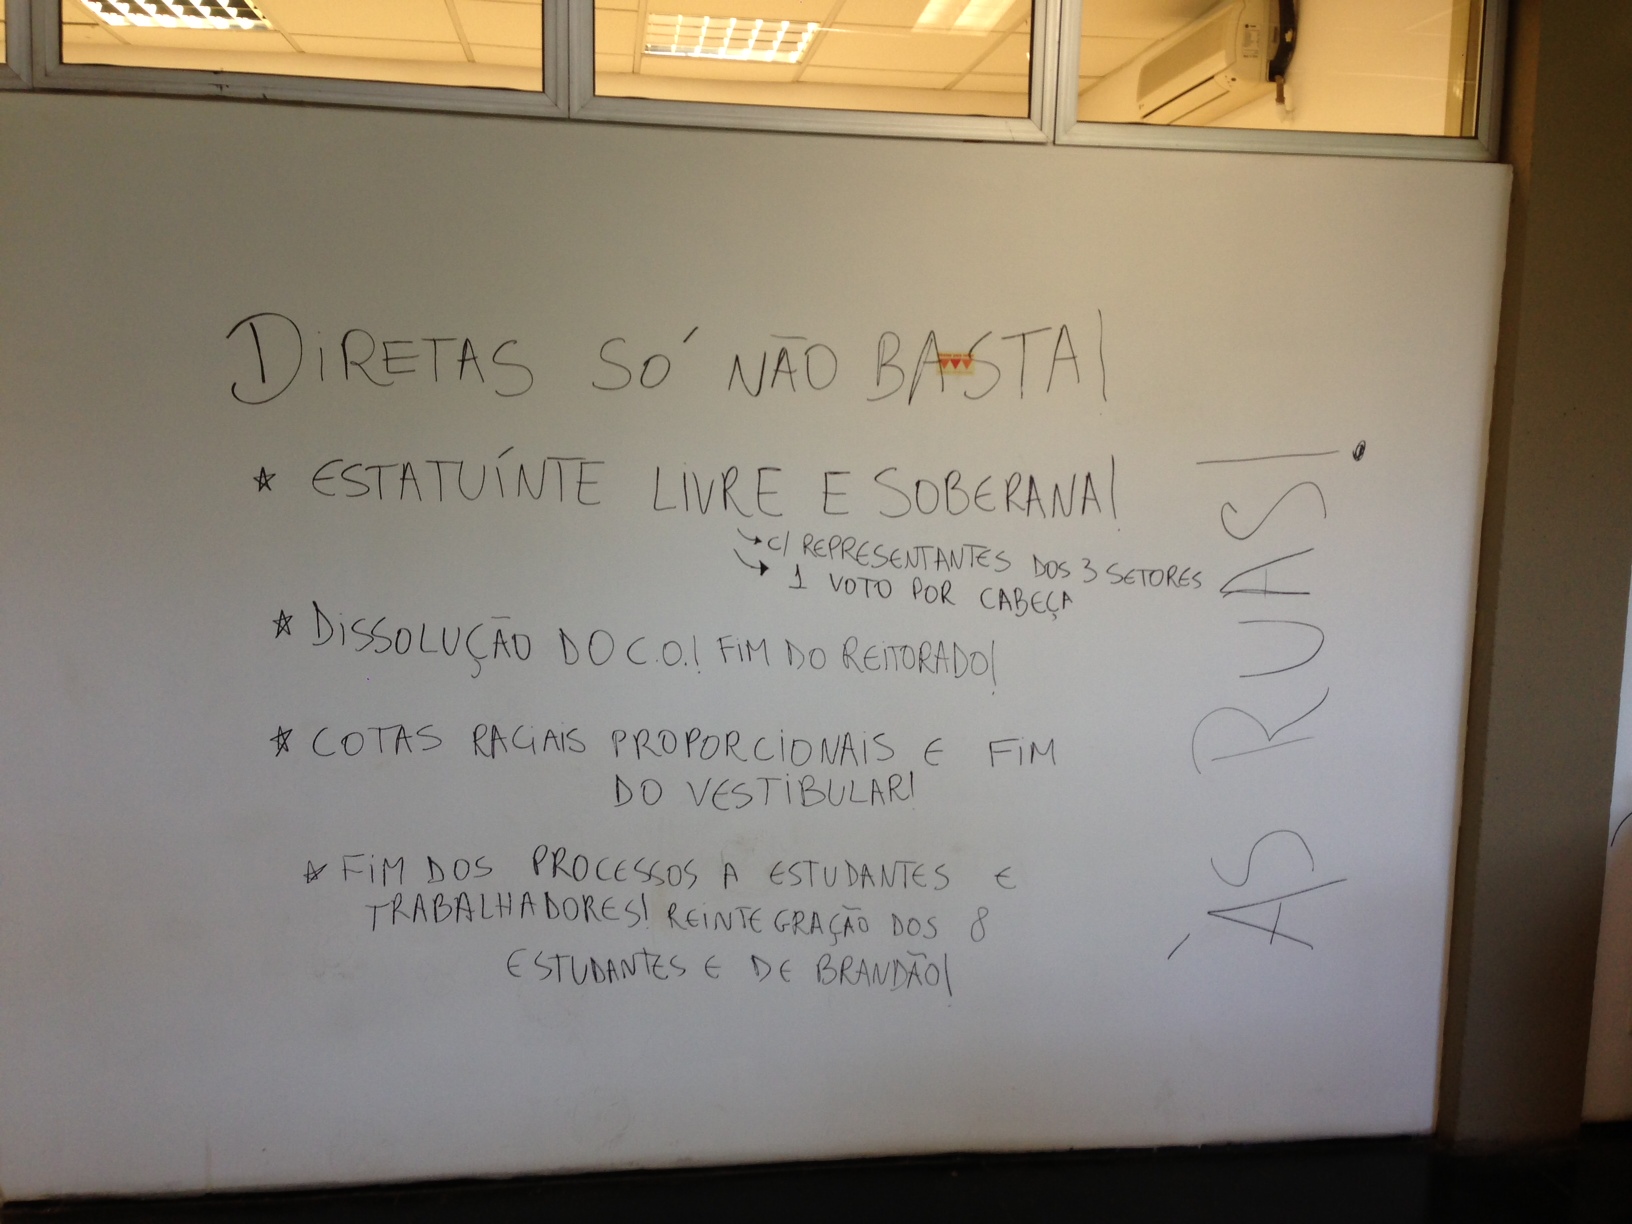 DIRETAS SÓ NÃO BASTA!
* ESTATUÍNTE LIVRE E SOBERANA!
→ C/ REPRESENTANTES DOS 3 SETORES
→ 1 VOTO POR CABEÇA
* DISSOLUÇÃO DO C.O.! FIM DO REITORADO!
* COTAS RACIAIS PROPORCIONAIS E FIM
DO VESTIBULAR!
* FIM DOS PROCESSOS A ESTUDANTES E
TRABALHADORES! REINTEGRAÇÃO DOS 8
ESTUDANTES E DE BRANDÃO!
ÀS RUAS!